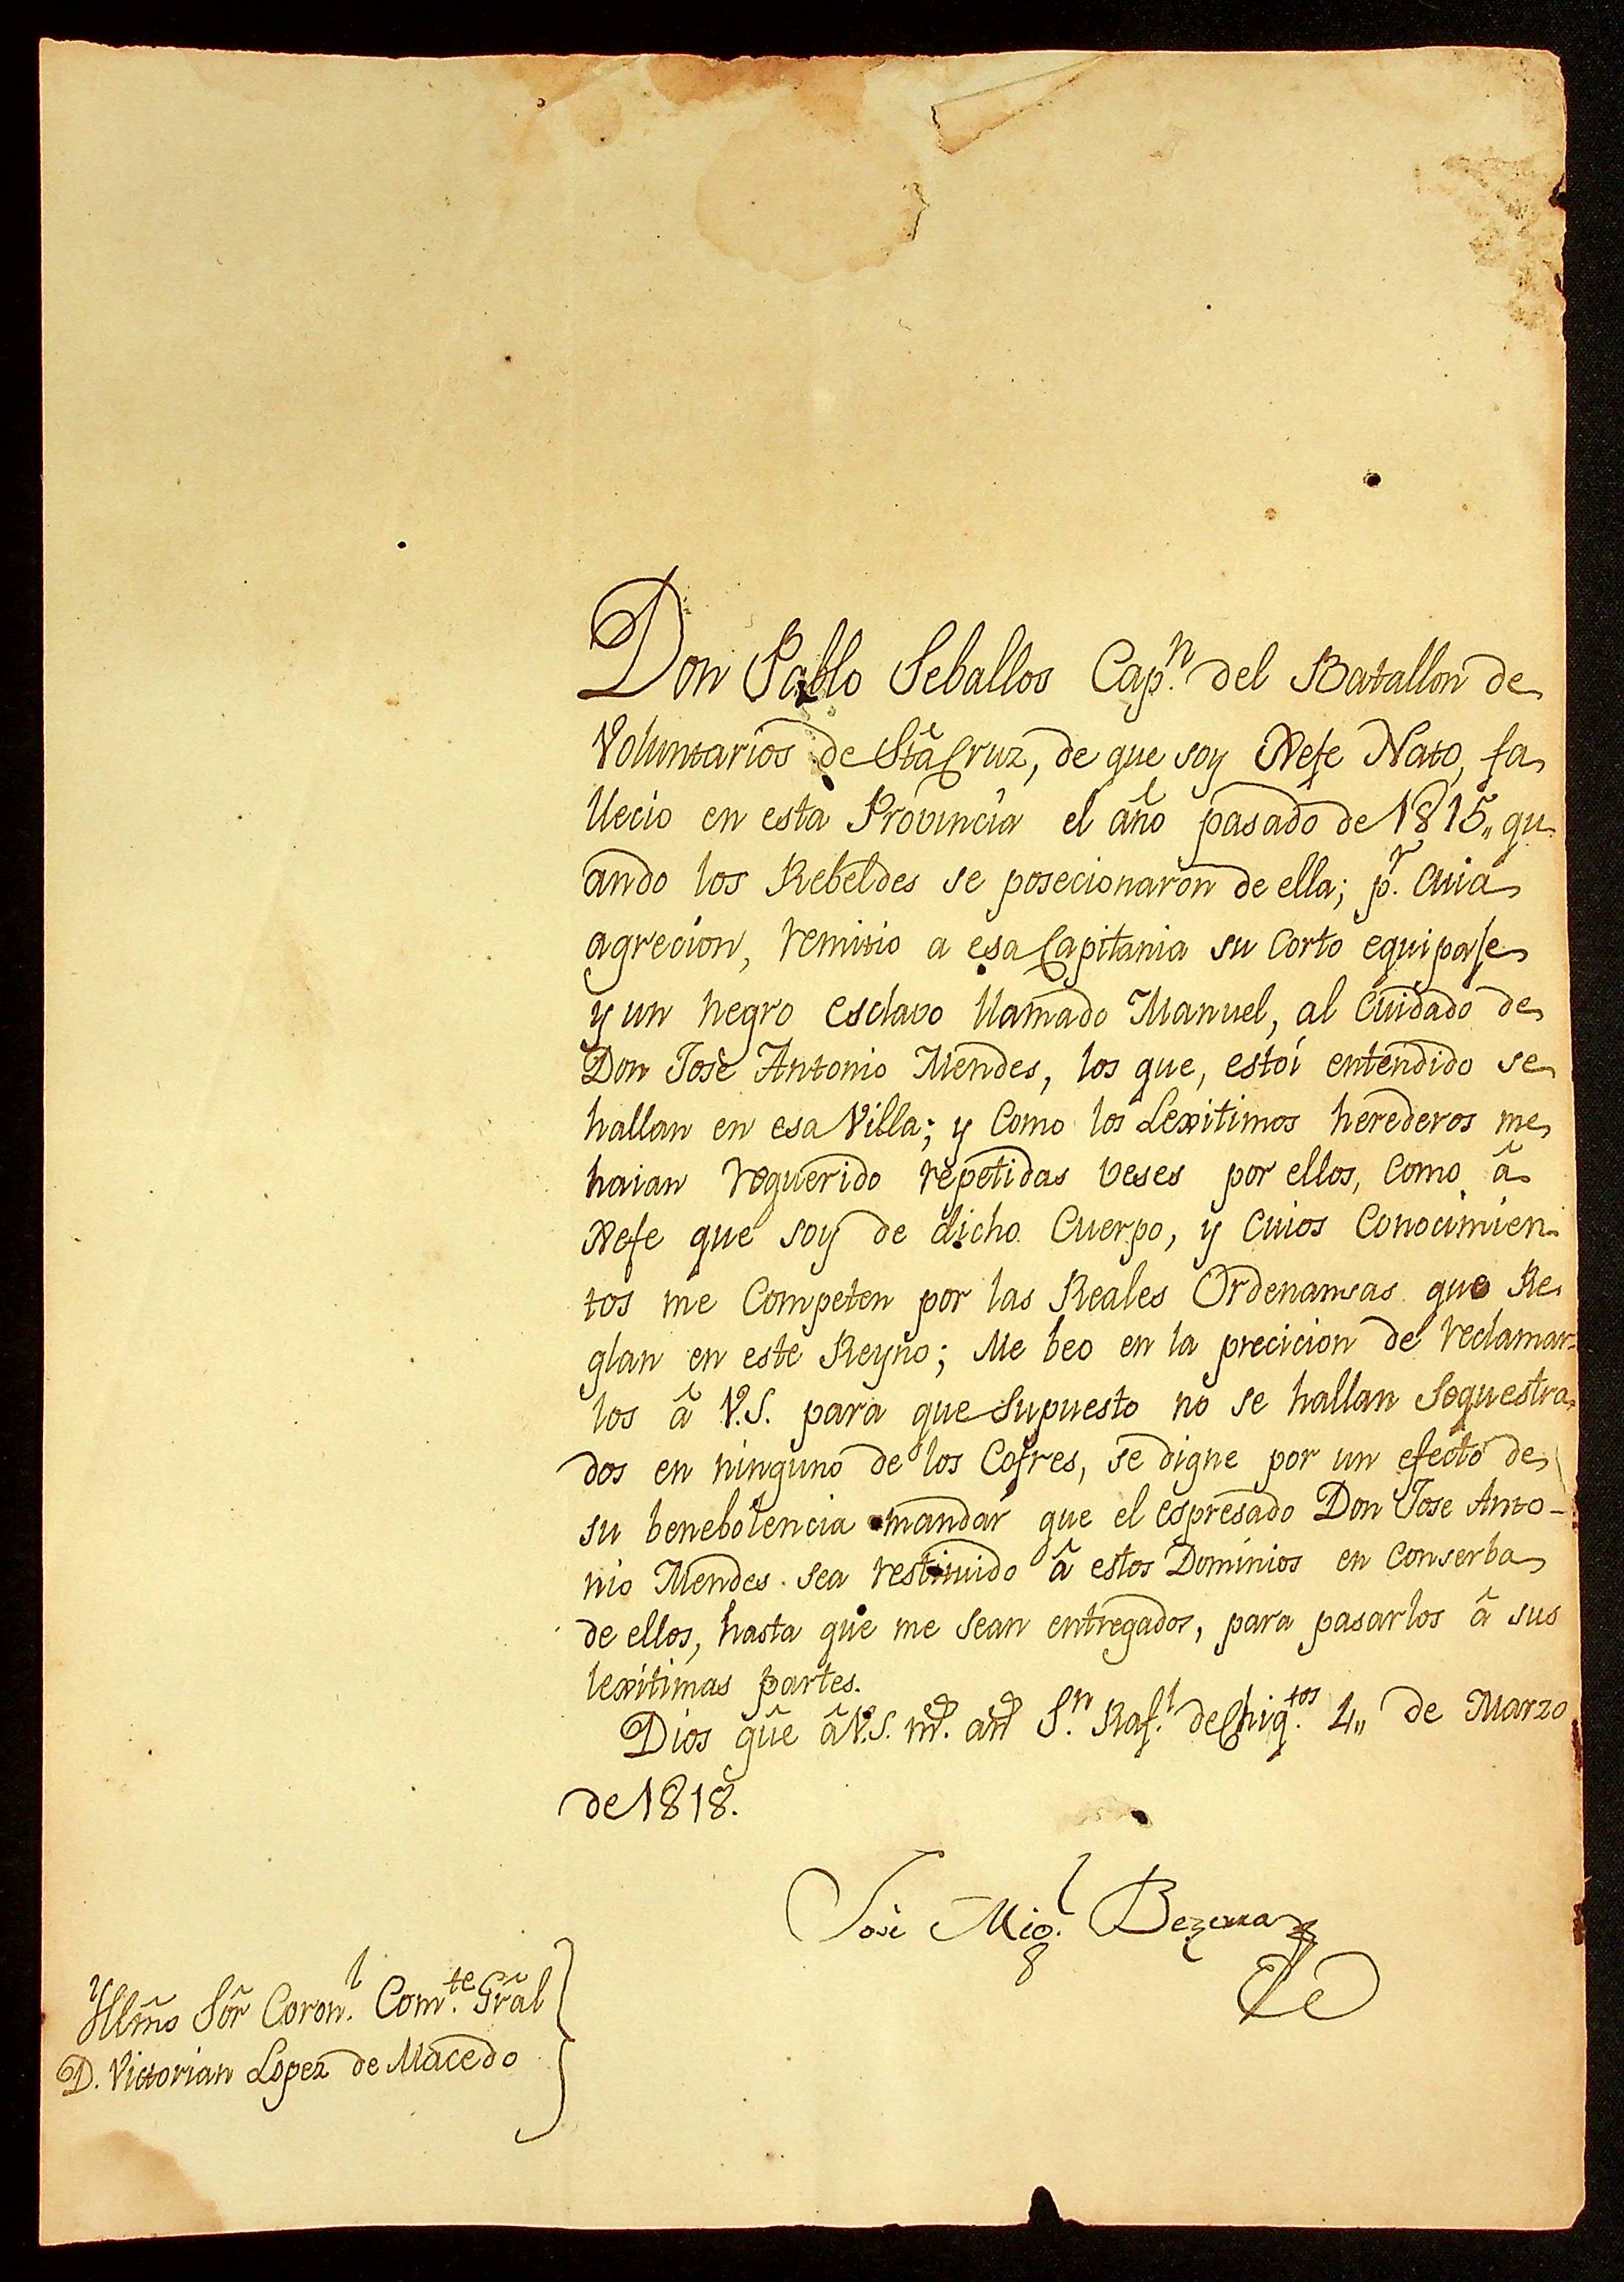 Don Pablo Seballos Cap.n del Batallon de
Voluntarios de Sta Cruz, de que soy Xefe Nato, fa
llecio en esta Provincia el año pasado de 1815,, qu-
ando los Rebeldes se posecionaron de ella; p.r cuia
agrecion, remitio a esa Capitania su corto equipaje
y un negro esclavo llamado Manuel, al cuidado de
Don José Antonio Mendes, los que, estoi entendido se
hallan en esa Villa; y como los Lexitimos herederos me
haian requerido repetidas veses por ellos, como â
Xefe que soy de dicho Cuerpo, y cuios conocimien-
tos me competen por las Reales Ordenansas que Re-
glan en este Reyno; Me beo en la precicion de reclamar-
los â V.S. para que supuesto no se hallan sequestra-
dos en ninguno de los Cofres, se digne por un efecto de
su benebolencia mandar que el espresado Don Jose Anto-
nio Mendes sea restituido â estos Dominios en conserba
de ellos, hasta que me sean entregados, para pasarlos â sus
lexitimas partes.
Dios gûe â V.S. m.s an.s S.n Raf.l de Chiq.tos 4,, de Marzo
de 1818.
José Mig.l Bezerra
Yllmo Sor Coron.l Com.te Gral
D. Victorian Lopez de Macedo